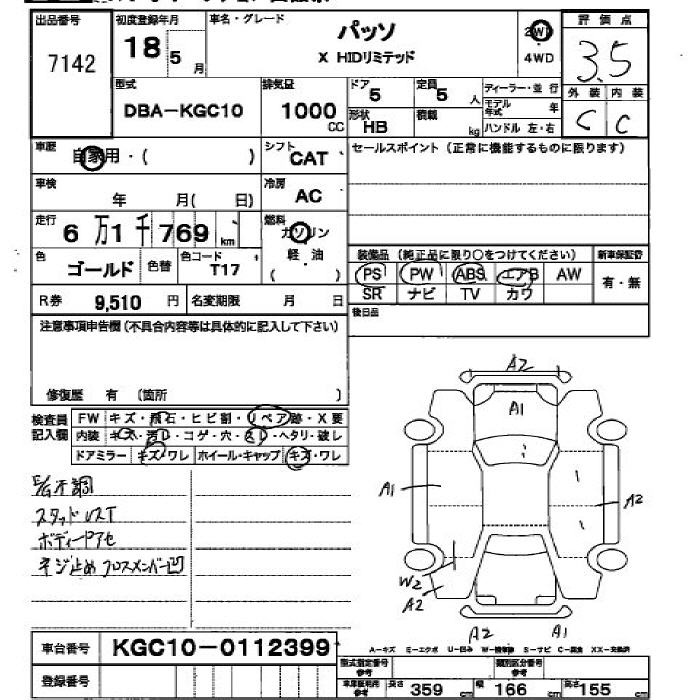 出品番号 初度登録年月 車名・グレード 評価点
7142 18 5 月 パッソ 2WD 3.5
X HIDリミテッド 4WD
型式 排気量 ドア 定員 ディーラー・並行 外装 内装
DBA-KGC10 1000 CC 5 5 人 モデル年式 年 C C
形状 HB 積載 kg ハンドル 左・右
車歴 自家用・( ) シフト CAT セールスポイント (正常に機能するものに限ります)
車検 年 月( 日) 冷房 AC
走行 6万1千769 km 燃料 ガソリン
軽・油
( )
色 ゴールド 色替 色コード T17
装備品 (純正品に限り○をつけてください) 新車保証書
PS PW ABS エアB AW 有・無
SR ナビ TV カワ
R券 9,510 円 名変期限 月 日
後日品
注意事項申告欄 (不具合内容等は具体的に記入して下さい)
修復歴 有 (箇所 )
検査員記入欄 FW キズ・飛石・ヒビ割・リペア跡・X要
内装 キズ・汚れ・コゲ・穴・スレ・ヘタリ・破レ
ドアミラー キズ・ワレ ホイール・キャップ キズ・ワレ
不調
スタッド
ボディーアセ
ネジ止め クロスメンバー凹
A2
A1
A1
A2
W2
A2
A2 A1
車台番号 KGC10-0112399
A-キズ E-エクボ U-凹み W-補修跡 S-サビ C-腐食 XX-交換済
登録番号
型式指定番号 参考 類別区分番号 参考
車庫証明用 参考 長さ 359 cm 幅 166 cm 高さ 155 cm